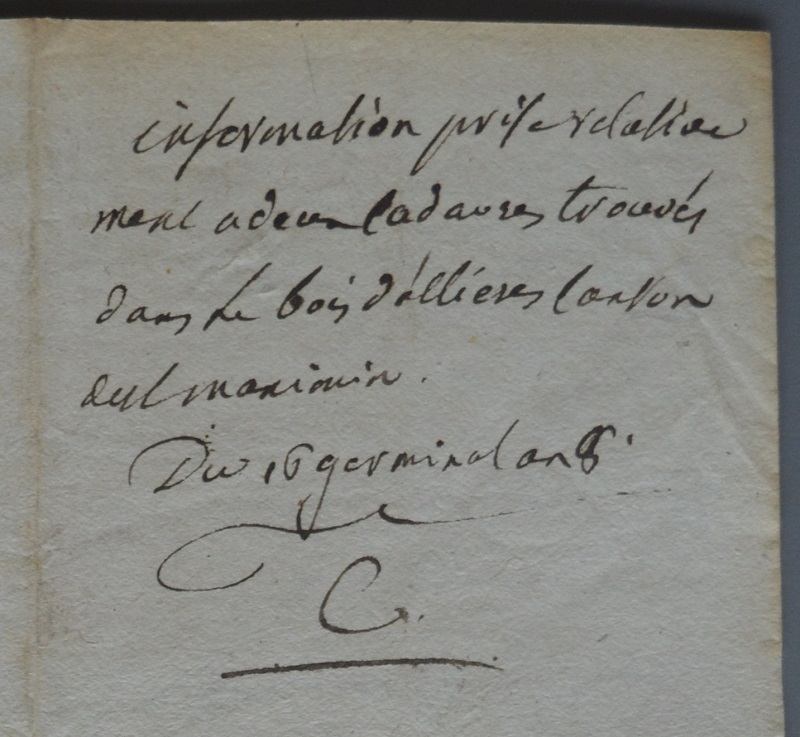 information prise relative
ment a deux Cadavres trouvés
dans le bois d'ollieres Canton
de st maximin.
Du 16 germinal an 8.
C.